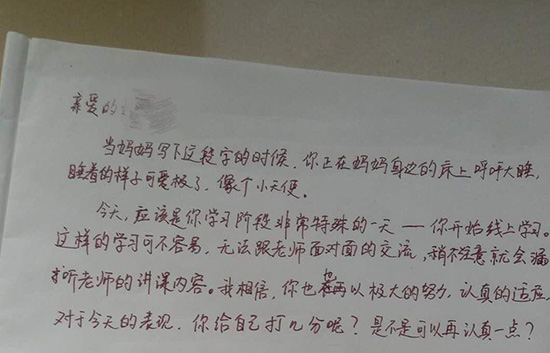 亲爱的
当妈妈写下这段字的时候，你正在妈妈身边的床上呼呼大睡，
睡着的样子可爱极了，像个小天使。
今天，应该是你学习阶段非常特殊的一天——你开始线上学习。
这样的学习可不容易，无法跟老师面对面的交流，稍不注意就会漏
听老师的讲课内容。我相信，你也在再以极大的努力，认真的适应。
对于今天的表现，你给自己打几分呢？是不是可以再认真一点？